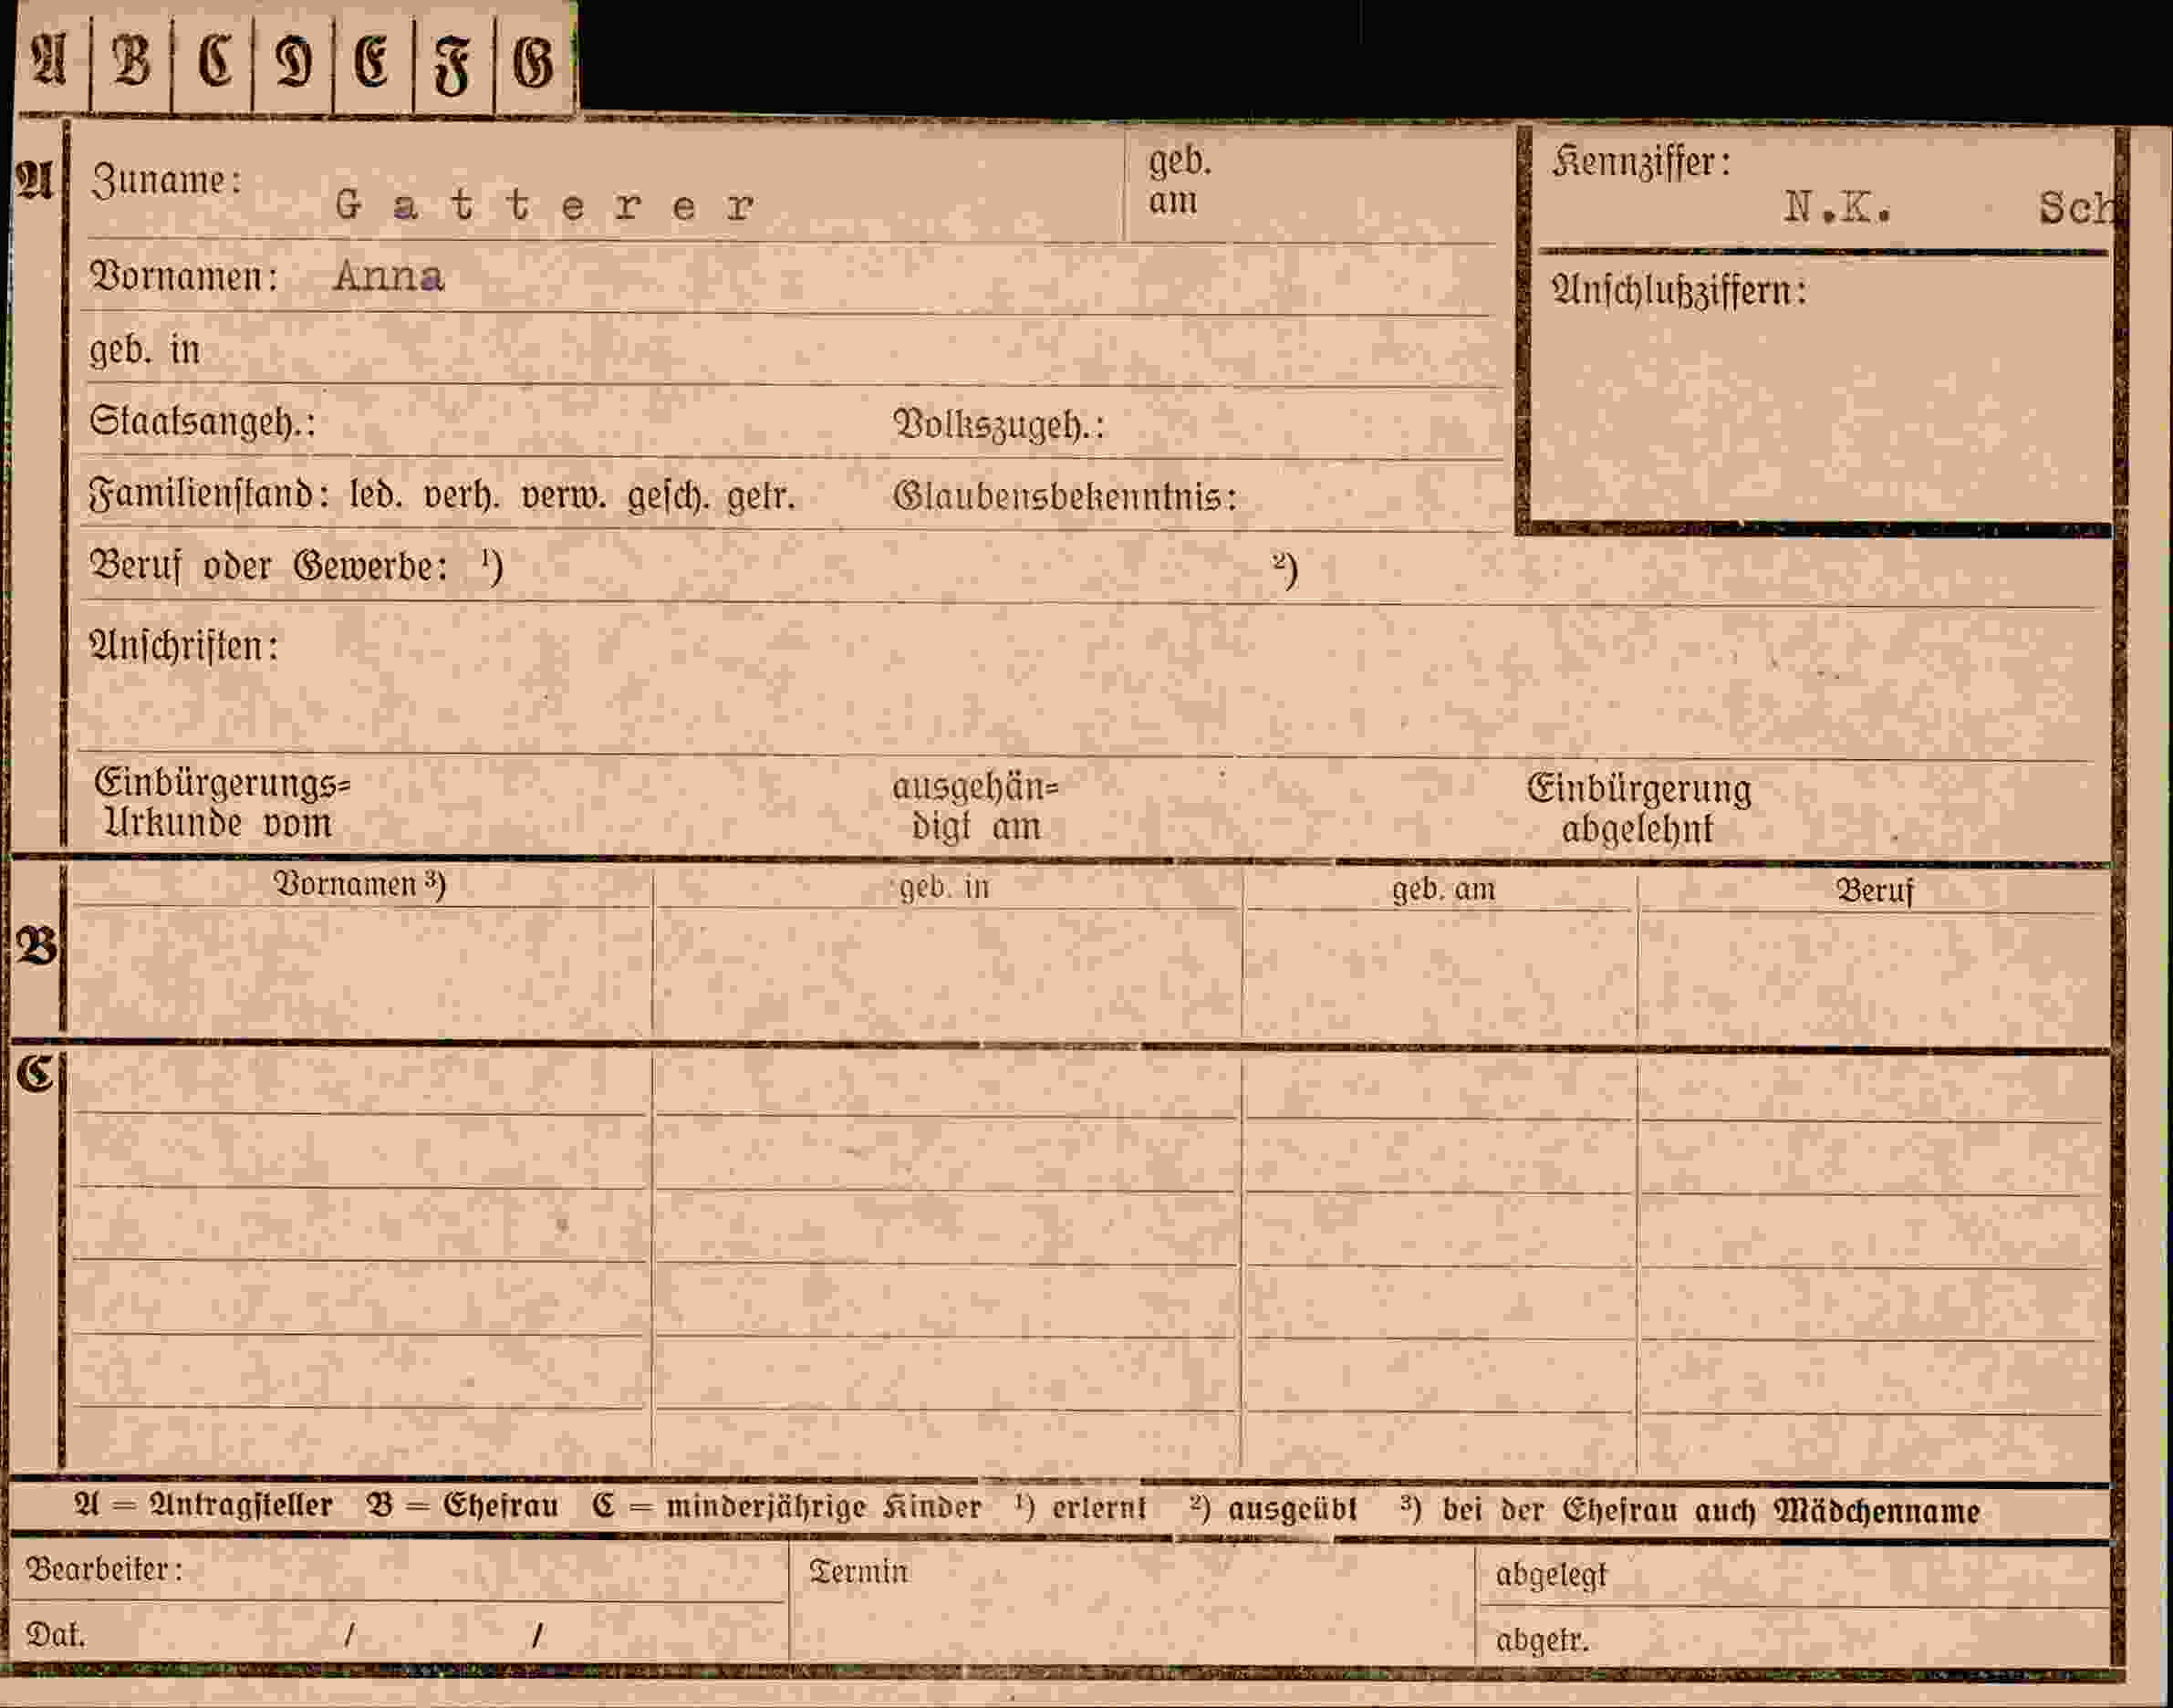 A B C D E F G
A Zuname: Gatterer geb. am Kennziffer: N.K. Sch
Vornamen: Anna Anschlußziffern:
geb. in
Staatsangeh.: Volkszugeh.:
Familienstand: led. verh. verw. gesch. getr. Glaubensbekenntnis:
Beruf oder Gewerbe: ¹) ²)
Anschriften:
Einbürgerungs= ausgehän= Einbürgerung
Urkunde vom digt am abgelehnt
Vornamen ³) geb. in geb. am Beruf
B
C
A = Antragsteller B = Ehefrau C = minderjährige Kinder ¹) erlernt ²) ausgeübt ³) bei der Ehefrau auch Mädchenname
Bearbeiter: Termin abgelegt
Dat. / / abgetr.